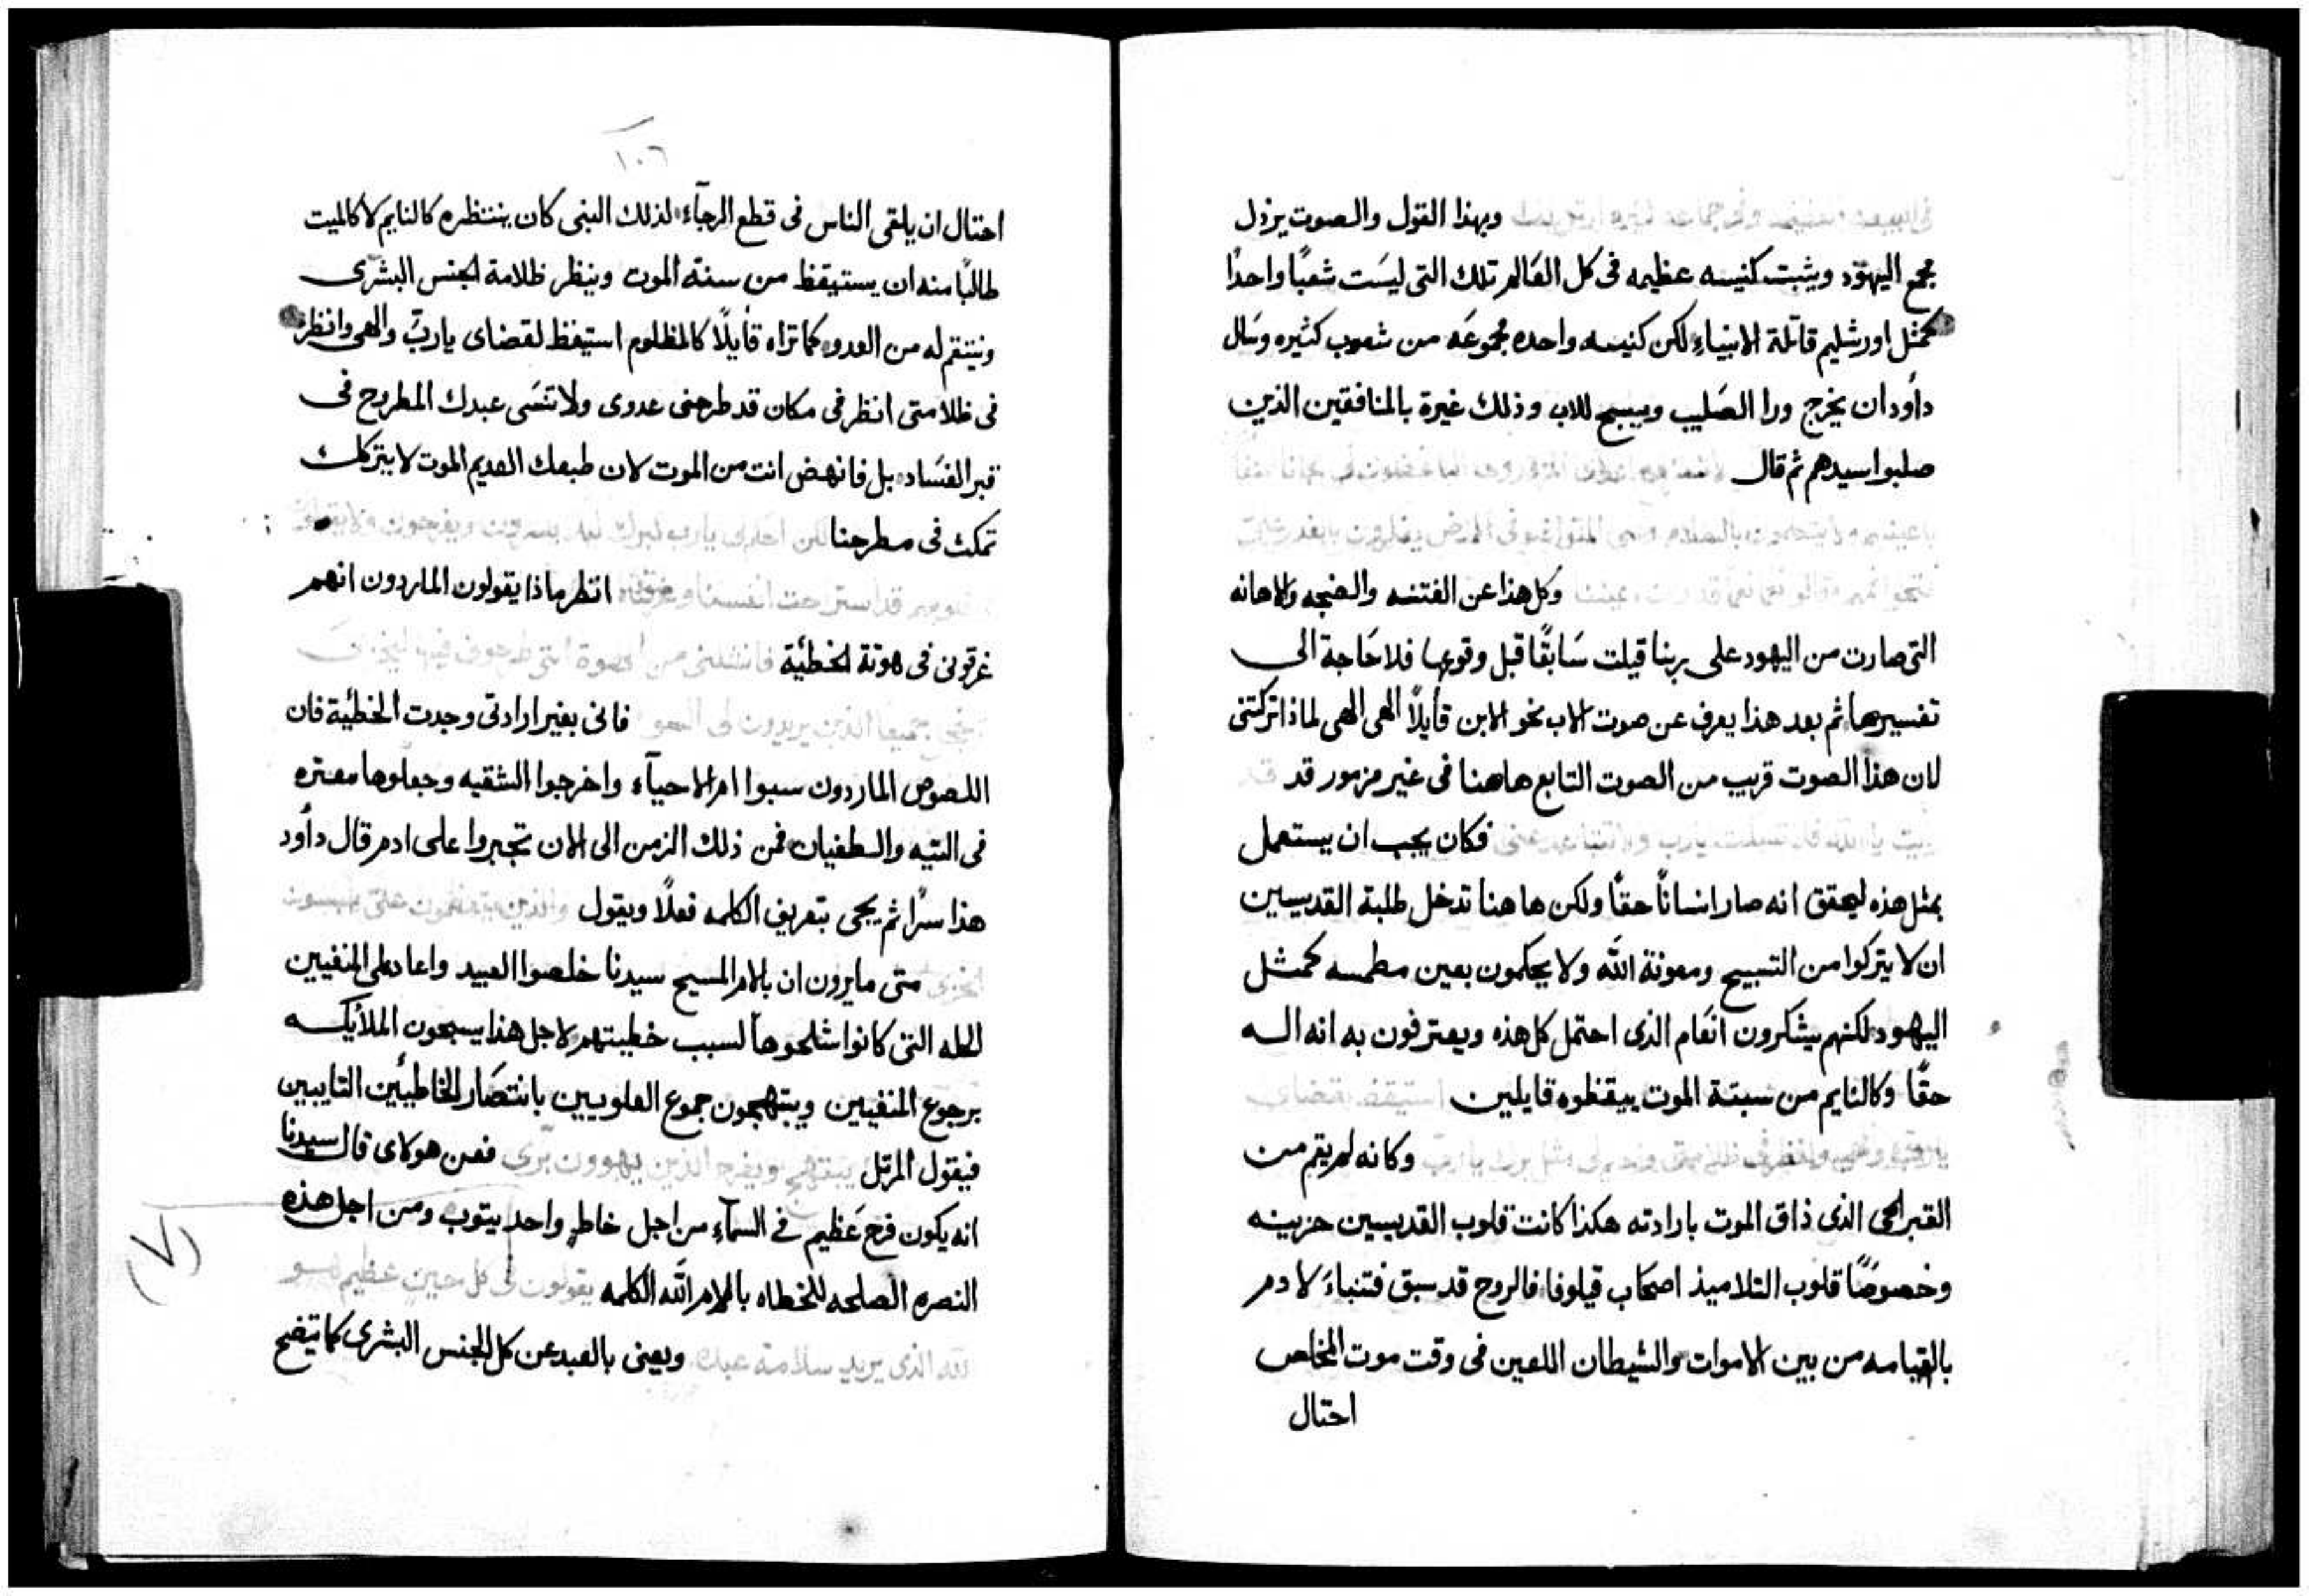 وبهذا القول والصوت يرذل
مجمع اليهود ويثبت كنيسه عظيمه فى كل العَالم تلك التى ليسَت شعبًا واحدًا
كمثل اورشليم قاتلة الانبياءِ لكن كنيسه واحده مجموعَه من شعوب كثيره وسَال
داود ان يخرج ورا الصَليب ويسبح للاب وذلك غيرة بالمنافقين الذين
صلبوا سيدهم ثم قال
وكل هذا عن الفتنه والضجه والاهانه
التى صارت من اليهود على ربنا قيلت سَابقًا قبل وقوعها فلا حَاجة الى
تفسيرها ثم بعد هذا يعرف عن صوت الاب نحو الابن قايلاً الهى الهى لماذا تركتنى
لان هذا الصوت قريب من الصوت التابع هاهنا فى غير مزمور قد
فكان يجب ان يستعمل
بمثل هذه ليحقق انه صار انسانًا حقًا ولكن هاهنا تدخل طلبة القديسين
ان لا يتركوا من التسبيح ومعونة الله ولا يحكمون بعين مطمسه كمثل
اليهود لكنهم يشكرون انعَام الذى احتمل كل هذه ويعترفون به انه اله
حقًا وكالنايم من سبتة الموت ييقظوه قايلين استيقظ بقضاى
وكانه لم يقم من
القبر الحى الذى ذاق الموت بارادته هكذا كانت قلوب القديسين حزينه
وخصوصًا قلوب التلاميذ اصحَاب قيلوفا فالروح قد سبق فتنباءَ لادم
بالقيامه من بين الاموات والشيطان اللعين فى وقت موت المخلص
احتال
١٠٦
احتال ان يلقى الناس فى قطع الرجآء لذلك النبى كان ينتظره كالنايم لا كالميت
طالبًا منه ان يستيقظ من سنة الموت وينظر ظلامة الجنس البشرى
وينتقم له من العدو كما تراه قايلاً كالمظلوم استيقظ لقضاى يارب والهى وانظر
فى ظلامتى انظر فى مكان قد طرحنى عدوى ولا تنسَى عبدك المطروح فى
قبر الفسَاد بل فانهض انت من الموت لان طبعك العديم الموت لا يتركك
تمكث فى مطرحنا
قد استراحت انفسنا انظر ماذا يقولون الماردون انهم
غرقونى فى هوتة الخطئية
فانى بغير ارادتى وجدت الخطئية فان
اللصوص الماردون سبوا ام الاحيآء واخرجوا الشقيه وجعلوها معتره
فى التيه والطغيان فمن ذلك الزمن الى الان تجبروا على ادم قال داود
هذا سرًا ثم يجى بتعريف الكلمه فعلاً ويقول
متى مايرون ان بالام المسيح سيدنا خلصوا العبيد واعاد الى المنفيين
الحله التى كانوا شلحوها لسبب خطيتهم لاجل هذا يسبحون الملايكه
برجوع المنفيين ويبتهجون جموع العلويين بانتصَار الخاطيئين التايبين
فيقول المرتل يبتهج ويفرح الذين يهوون برّى فعن هولاى قال سيدنا
انه يكون فرح عَظيم فى السمآءِ من اجل خاطٍ واحد يتوب ومن اجل هذه
النصره الصلحه للخطاه بالام الله الكلمه يقولون فى كل حين عظيم هو
الله الذى يريد سلامة عبده ويعنى بالعبد عن كل الجنس البشرى كما يتضح
(٧)